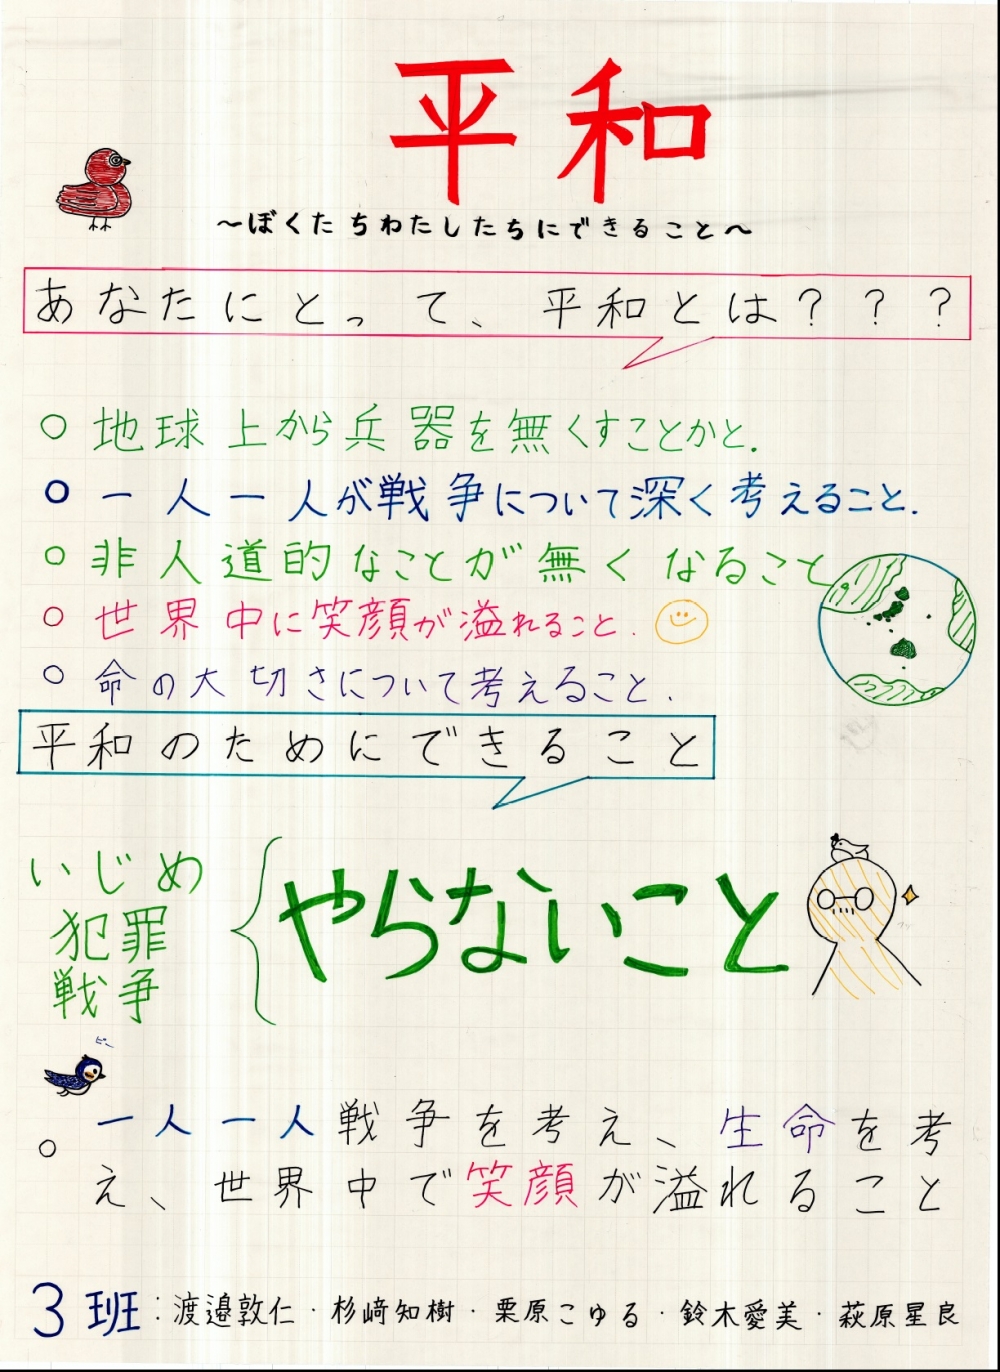 平和
～ぼくたちわたしたちにできること～
あなたにとって、平和とは？？？
○ 地球上から兵器を無くすことかと.
○ 一人一人が戦争について深く考えること.
○ 非人道的なことが無くなること
○ 世界中に笑顔が溢れること.
○ 命の大切さについて考えること.
平和のためにできること
いじめ
犯罪
戦争
やらないこと
ピー
○ 一人一人戦争を考え、生命を考
え、世界中で笑顔が溢れること
3班:渡邉敦仁・杉﨑知樹・栗原こゆる・鈴木愛美・萩原星良